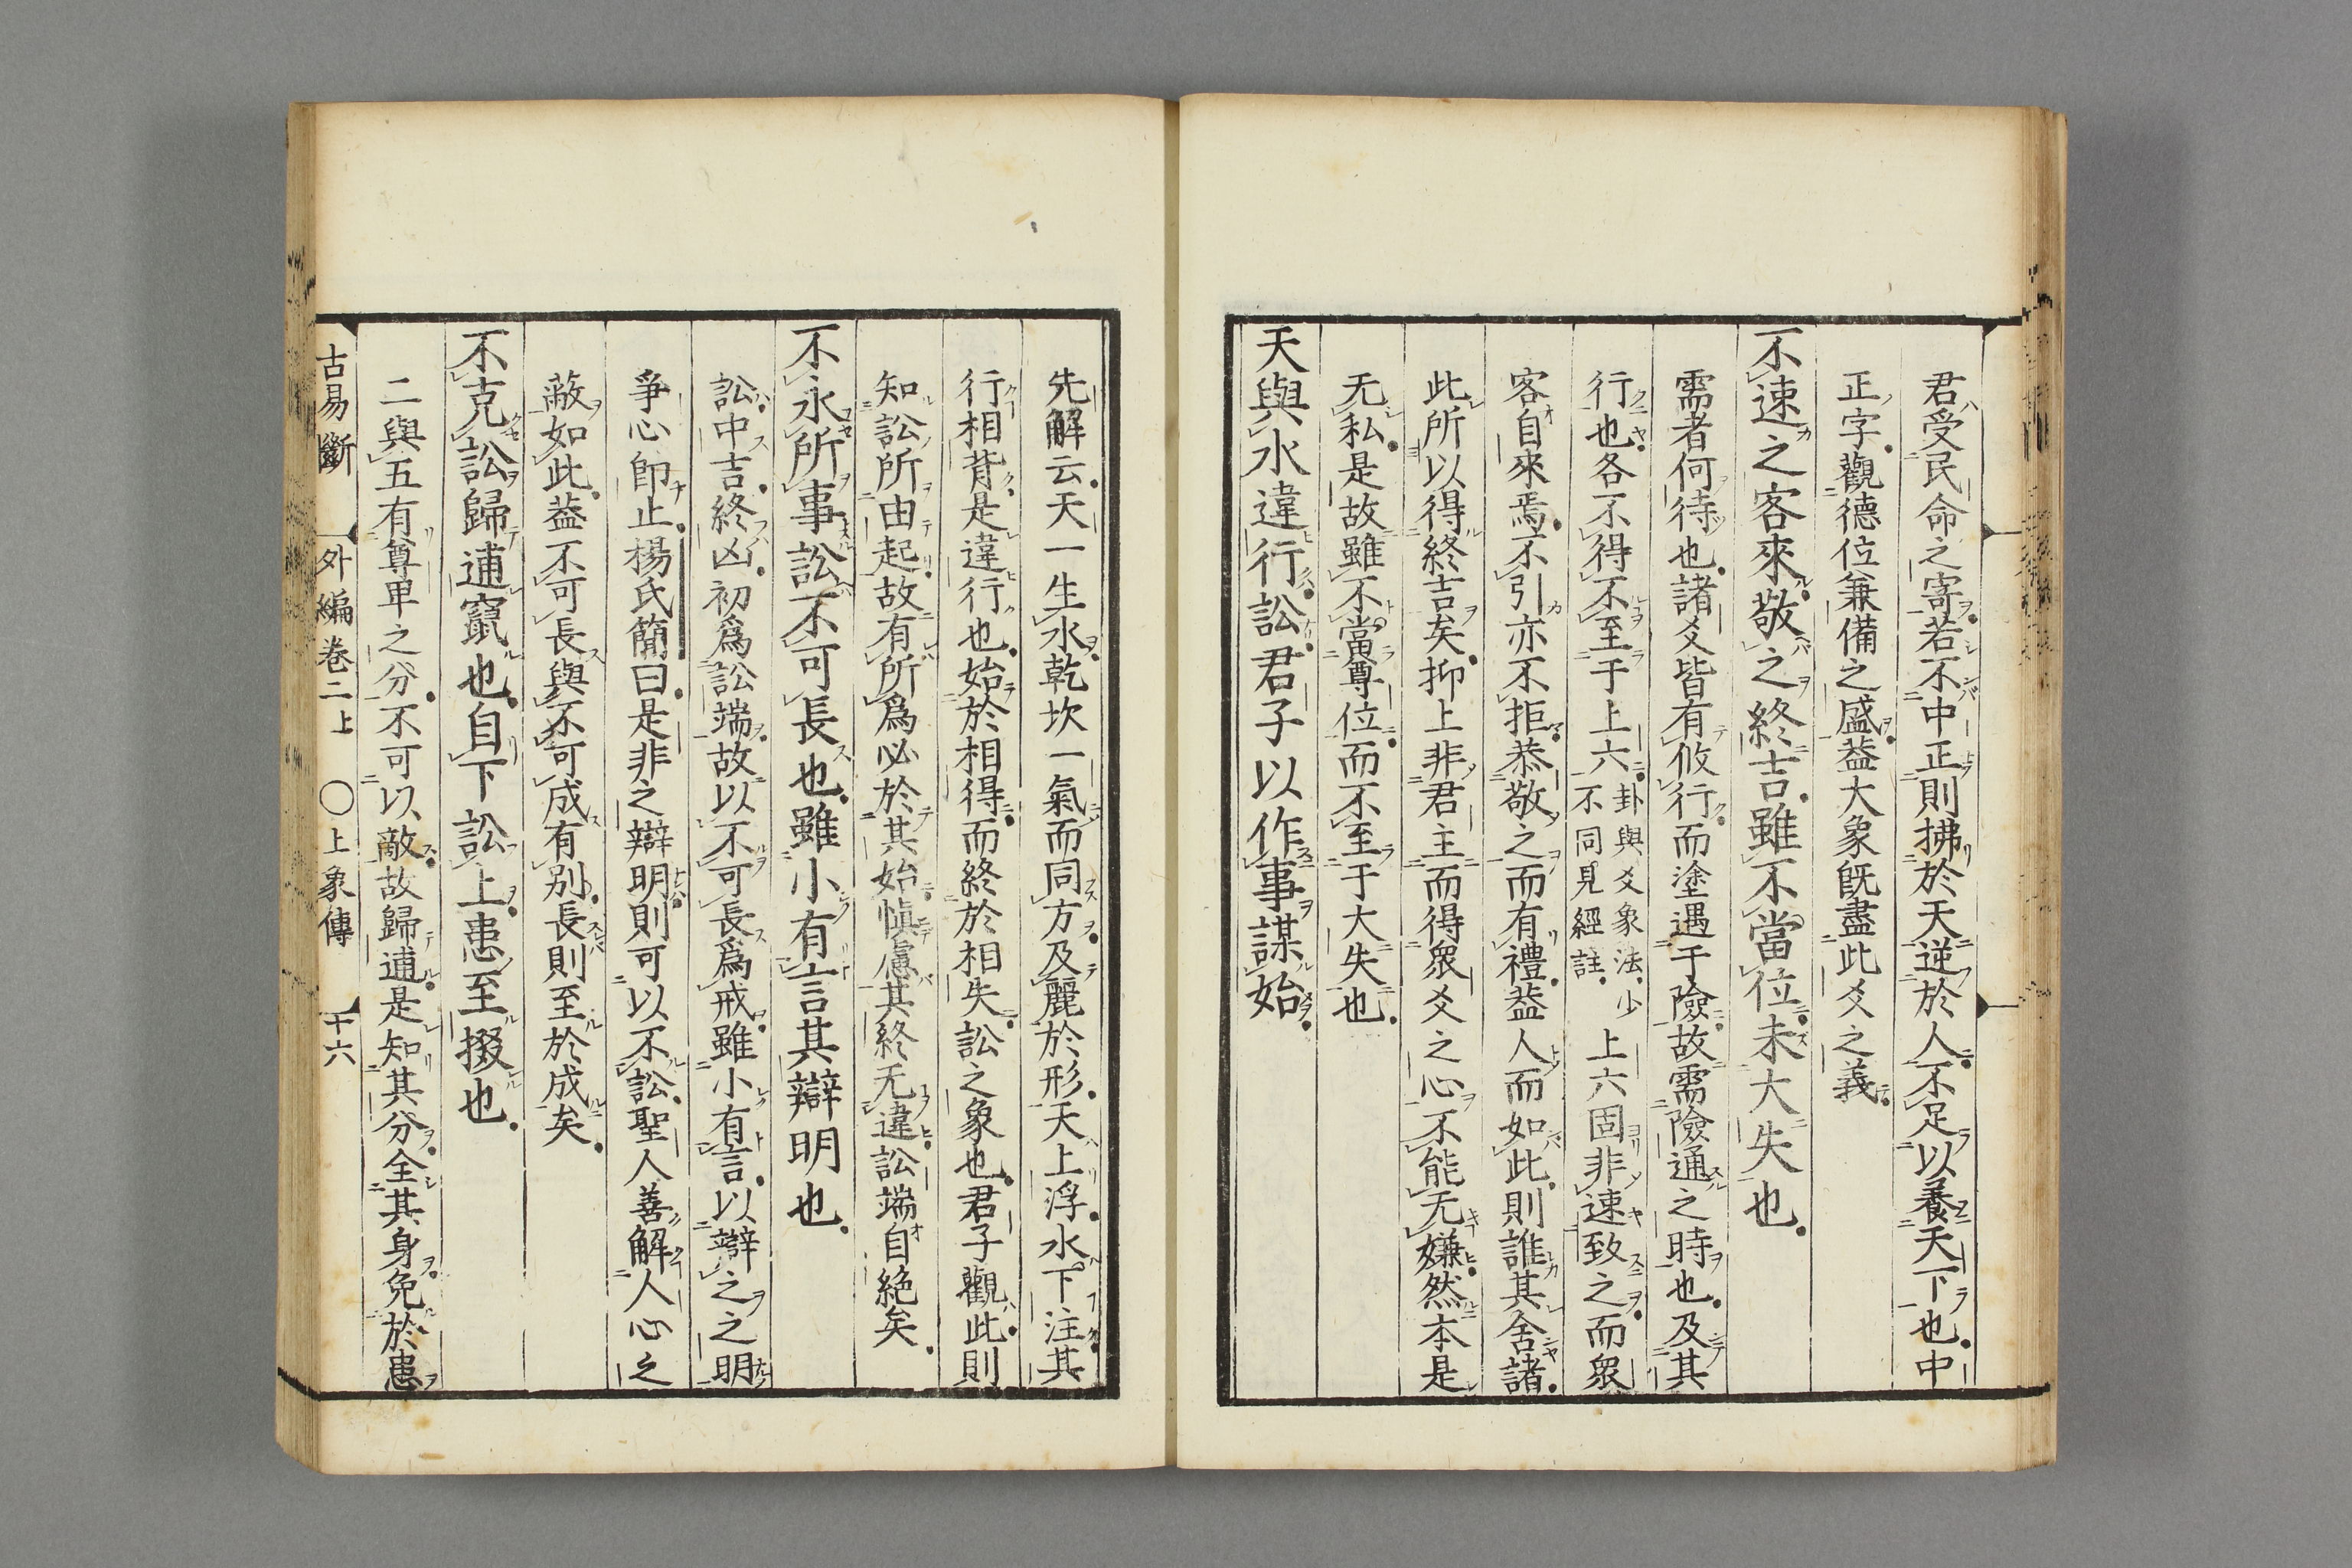 君受民命之寄若不中正則拂於天逆於人不足以養天下也中
正字觀德位兼備之盛益大象既盡此爻之義
不速之客來敬之終吉雖不當位未大失也
需者何待也諸爻皆有攸行而塗遇于險故需險通之時也及其
行也各不得不至于上六卦與爻象法少不同見經註上六固非速致之而衆
客自來焉不引亦不拒恭敬之而有禮蓋人而如此則誰其舍諸
此所以得終吉矣抑上非君主而得衆爻之心不能无嫌然本是
无私是故雖不當尊位而不至于大失也
天與水違行訟君子以作事謀始
先解云天一生水乾坎一氣而同方及麗於形天上浮水下注其
行相背是違行也始於相得而終於相失訟之象也君子觀此則
知訟所由起故有所爲必於其始愼慮其終无違訟端自絕矣
不永所事訟不可長也雖小有言其辯明也
訟中吉終凶初爲訟端故以不可長爲戒雖小有言以辯之之明
爭心卽止楊氏簡曰是非之辯明則可以不訟聖人善解人心之
敵如此蓋不可長與不可成有別長則至於成矣
不克訟歸逋竄也自下訟上患至掇也
二與五有尊卑之分不可以敵故歸逋是知其分全其身免於患
古易斷 外編卷二上 ○上象傳 十六